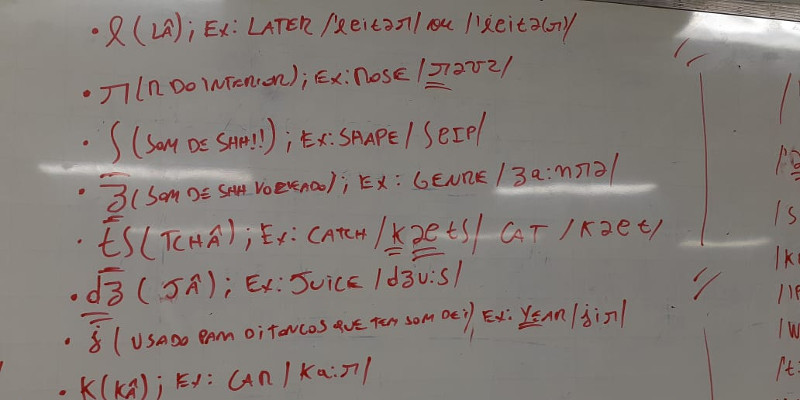 • l (LÂ); EX: LATER /ˈleitəɹ/ OU /ˈleitə(ɹ)/
• ɹ (R DO INTERIOR); EX: ROSE /ɹəʊz/
• ʃ (SOM DE SHH!!); EX: SHAPE /ʃeɪp/
• ʒ (SOM DE SHH VOZEADO); EX: GENRE /ʒa:nɹə/
• tʃ (TCHÂ); EX: CATCH /kætʃ/ CAT /kæt/
• dʒ (JÂ); EX: JUICE /dʒu:s/
• j (USADO PARA DITONGOS QUE TEM SOM DE i), EX: YEAR /jiɹ/
• K (KÂ); EX: CAR /ka:ɹ/